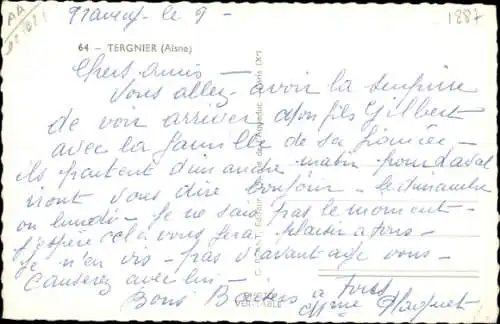 le 9 -
1887
64 - TERGNIER (Aisne)
Chers amis -
Vous allez avoir la surprise
de voir arriver mon fils Gilbert
avec la famille de sa fiancée -
ils partent dimanche matin pour Laval
iront vous dire bonjour - le dimanche
ou lundi - je ne sais pas le moment -
j'espère cela vous fera plaisir à tous -
je n'en dis pas d'avantage vous
causerez avec lui -
Bons Baisers à tous
Mme
VÉRITABLE